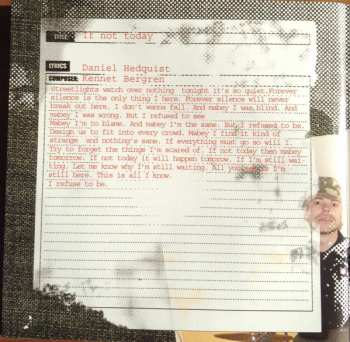 TITLE: If not today
LYRICS Daniel Hedquist
COMPOSER: Kennet Bergren
Streetlights watch over nothing tonight it's so quiet.Forever
silence is the only thing i here. Forever silence will never
break out here. I don't wanna fall. And mabey I was blind. And
mabey I was wrong. But I refused to see
Mabey I'm to blame. And mabey I'm the same. But I refused to be.
Design us to fit into every crowd. Mabey I find it kind of
strange and nothing's same. If everything must go so will I.
Try to forget the things I'm scared of. If not today then mabey
tomorrow. If not today it will happen tomorrow. If I'm still wai-
ting. Let me know why I'm still waiting. All I'm
still here. This is all I know.
I refuse to be.